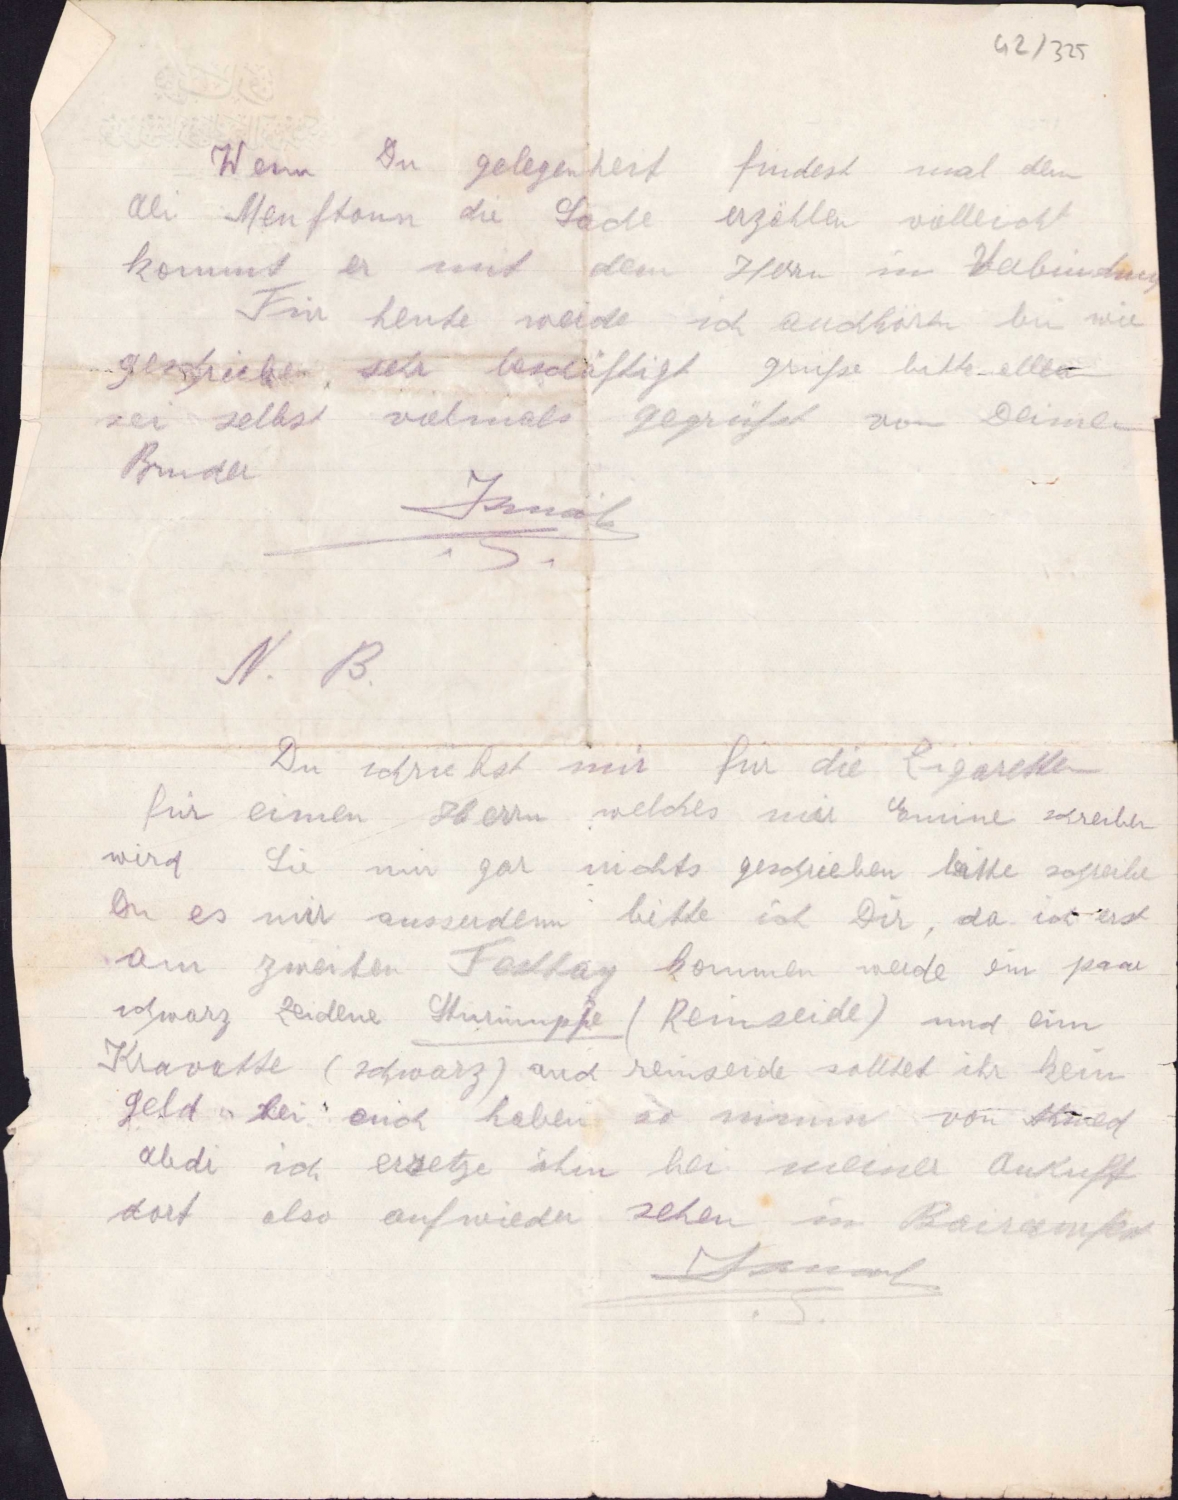 42/325
Wenn Du gelegenheit findest mal dem
Ali die Sache erzählen villeicht
kommt er mit dem Herrn in Verbindung
Für heute werde ich aufhören bin wie
geschrieben, sehr beschäftigt grüße bitte allen
sei selbst vielmals gegrüßt von Deinen
Bruder
Ismail
N. B.
Du schriebst mir für die Zigaretten
für einen Herrn welches mir Emine schreiben
wird Sie mir gar nichts geschrieben bitte schreibe
Du es mir ausserdem bitte ich Dir, da ich erst
am zweiten Festtag kommen werde ein paar
schwarz Zeidene Strümpfe (Reinseide) und ein
Kravatte (schwarz) und reinseide solltet ihr kein
geld bei euch haben so nimm von Ahmed
abdi ich ersetze ihm bei meiner Ankuft
dort also aufwieder sehen in Bairamfest
Ismail